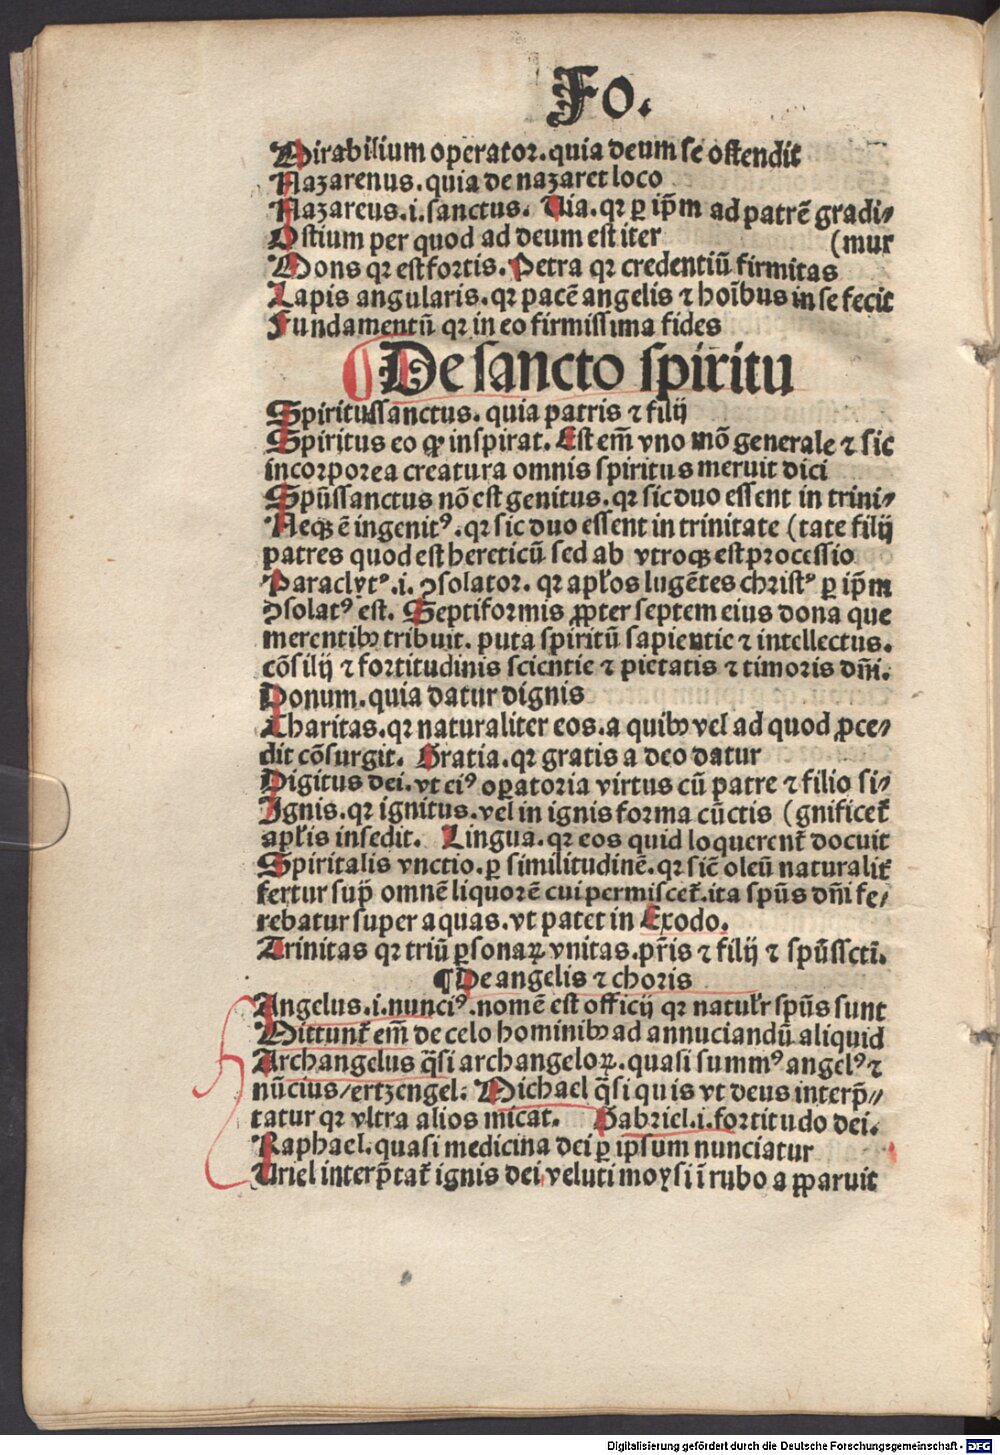 Fo.
Mirabilium operator.quia deum se ostendit
Nazarenus.quia de nazaret loco
Nazareus.i.sanctus. Uia.qr ꝑ ip̄m ad patrē gradi⸗
Ostium per quod ad deum est iter (mur
Mons qr est fortis. Petra qr credentiū firmitas
Lapis angularis.qr pacē angelis ⁊ hoībus in se fecit
Fundamentū qr in eo firmissima fides
De sancto spiritu
Spiritussanctus. quia patris ⁊ filij
Spiritus eo ꝙ inspirat. Est em̄ vno mō generale ⁊ sic
incorporea creatura omnis spiritus meruit dici
Spūssanctus nō est genitus. qr sic duo essent in trini⸗
Neqꝫ ē ingenitꝰ.qr sic duo essent in trinitate (tate filij
patres quod est hereticū sed ab vtroqꝫ est processio
Paraclytꝰ.i. ꝯsolator. qr apl̄os lugētes christꝰ ꝑ ip̄m
ꝯsolatꝰ est. Septiformis ꝓpter septem eius dona que
merentibꝫ tribuit. puta spiritū sapientie ⁊ intellectus.
cōsilij ⁊ fortitudinis scientie ⁊ pietatis ⁊ timoris dn̄i.
Donum.quia datur dignis
Charitas.qr naturaliter eos.a quibꝫ vel ad quod ꝓce⸗
dit cōsurgit. Gratia.qr gratis a deo datur
Digitus dei.vt eiꝰ oꝑatoria virtus cū patre ⁊ filio si⸗
Ignis.qr ignitus.vel in ignis forma cūctis (gnificet᷑
apl̄is insedit. Lingua.qr eos quid loquerent᷑ docuit
Spiritalis vnctio.ꝑ similitudinē.qr sicē oleū naturalit᷑
fertur sup̄ omnē liquorē cui permiscet᷑.ita spūs dn̄i fe⸗
rebatur super aquas.vt patet in Exodo.
Trinitas qr triū ꝑsonaꝝ vnitas.pr̄is ⁊ filij ⁊ spūssctī.
¶De angelis ⁊ choris
Angelus.i.nunciꝰ.nomē est officij qr natul̄r spūs sunt
Mittunt᷑ em̄ de celo hominibꝫ ad annuciandū aliquid
Archangelus q̄si archangeloꝝ.quasi summꝰ angelꝰ ⁊
nūcius/ertzengel: Michael q̄si quis vt deus interp̄⸗
tatur qr vltra alios micat. Gabriel.i.fortitudo dei.
Raphael.quasi medicina dei ꝑ ipsum nunciatur
Uriel interp̄tat᷑ ignis dei veluti moysi ī rubo aꝑparuit
Digitalisierung gefördert durch die Deutsche Forschungsgemeinschaft - DFG